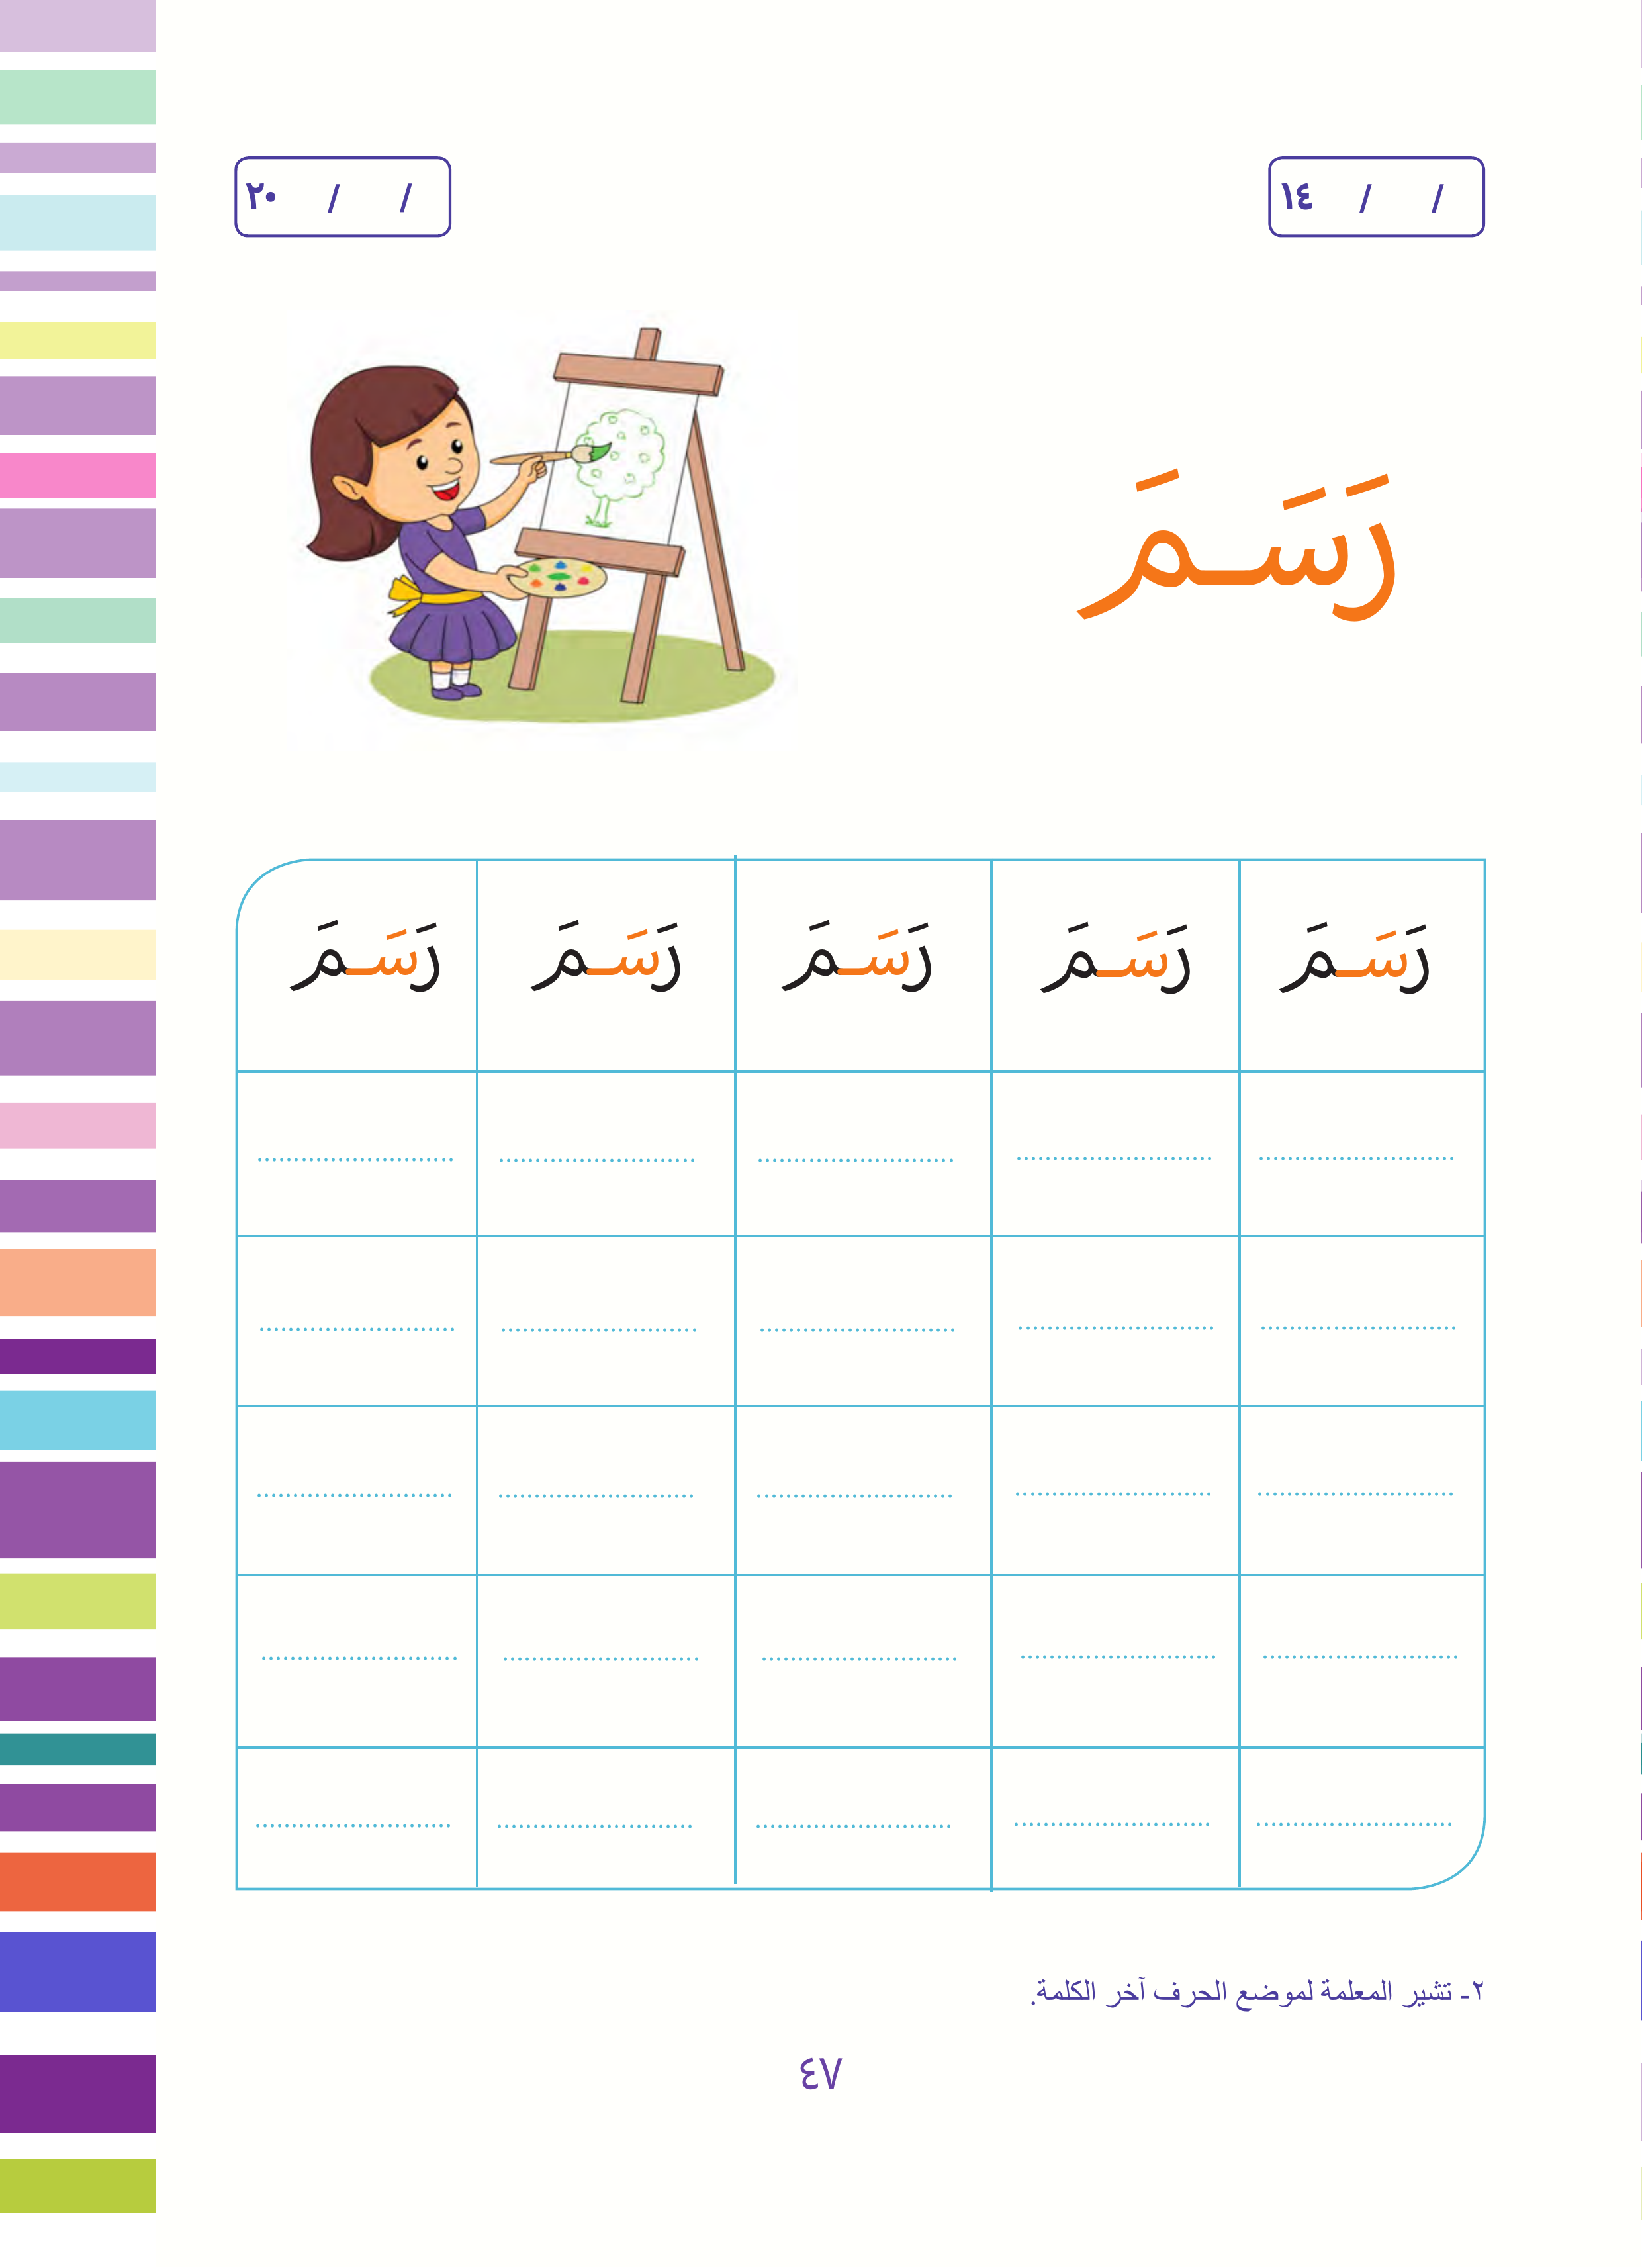 ١٤ / /
٢٠ / /
رَسَـمَ
رَسَـمَ رَسَـمَ رَسَـمَ رَسَـمَ رَسَـمَ
٢- تشير المعلمة لموضع الحرف آخر الكلمة.
٤٧